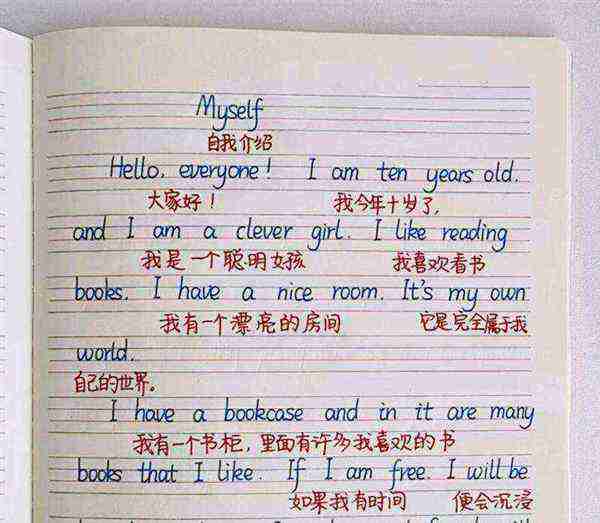 Myself
自我介绍
Hello, everyone! I am ten years old.
大家好! 我今年十岁了,
and I am a clever girl. I like reading
我是一个聪明女孩 我喜欢看书
books. I have a nice room. It's my own
我有一个漂亮的房间 它是完全属于我
world.
自己的世界。
I have a bookcase and in it are many
我有一个书柜, 里面有许多我喜欢的书
books that I like. If I am free. I will be
如果我有时间 便会沉浸